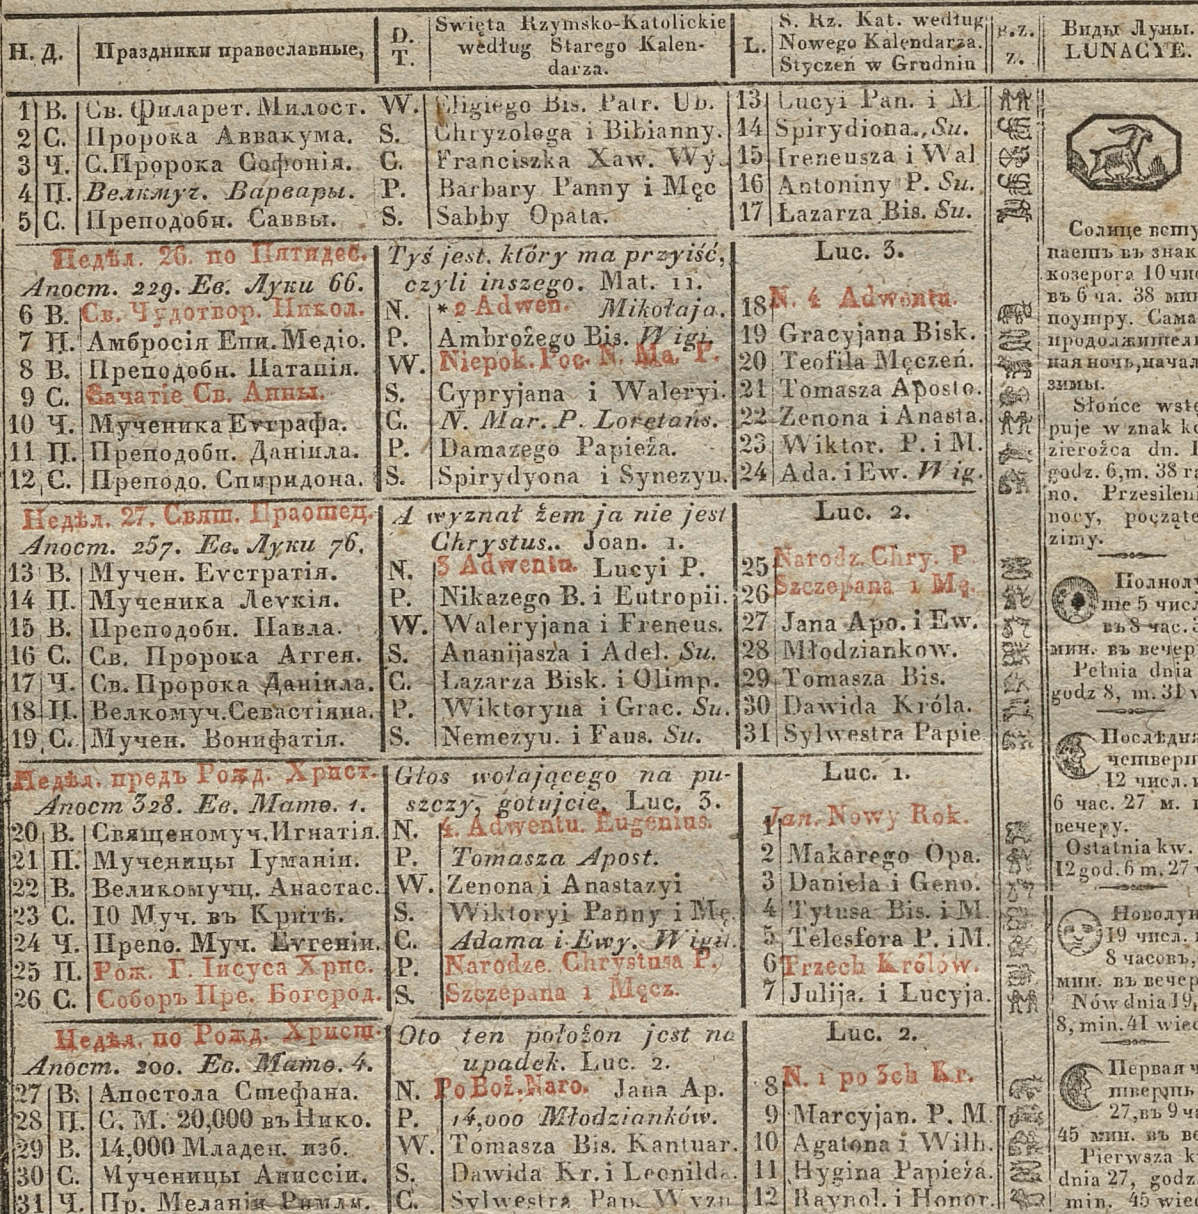 Н. Д. Праздники православные, D. T. Swięta Rzymsko-Katolickie według Starego Kalendarza. L. S. Rz. Kat. według Nowego Kalendarza. Styczeń w Grudniu z. Виды Луны. LUNACYE.
1 В. Св. Филарет. Милост. W. Eligiego Bis. Patr. Ub. 13 Lucyi Pan. i M
2 С. Пророка Аввакума. S. Chryzologa i Bibianny. 14 Spirydiona. Su.
3 Ч. С.Пророка Софонія. C. Franciszka Xaw. Wý. 15 Ireneusza i Wal
4 П. Велкмуч. Варвары. P. Barbary Panny i Męc 16 Antoniny P. Su.
5 С. Преподобн. Саввы. S. Sabby Opata. 17 Łazarza Bis. Su.
Недѣл. 26. по Пятидес. Tyś jest, który ma przyiść, Luc. 3.
Апост. 229. Ев. Луки 66. czyli inszego. Mat. 11.
6 В. Св. Чудотвор. Никол. N. *2 Adwen. Mikołaja. 18 N. 4 Adwentu.
7 П. Амбросія Епи. Медіо. P. Ambrożego Bis. Wigi. 19 Gracyjana Bisk.
8 В. Преподобн. Патапія. W. Niepok. Poc. N. Ma. P. 20 Teofila Męczeń.
9 С. Зачатіе Св. Анны. S. Cypryjana i Waleryi. 21 Tomasza Aposto.
10 Ч. Мученика Еѵграфа. C. N. Mar. P. Loretańs. 22 Zenona i Anasta.
11 П. Преподобн. Даніила. P. Damazego Papieża. 23 Wiktor. P. i M.
12 С. Преподо. Спиридона. S. Spirydyona i Synezyu. 24 Ada. i Ew. Wig.
Недѣл. 27. Свят. Праотец. A wyznał żem ja nie jest Luc. 2.
Апост. 257. Ев. Луки 76. Chrystus.. Joan. 1.
13 В. Мучен. Еѵстратія. N. 3 Adwentu. Lucyi P. 25 Narodz. Chry. P
14 П. Мученика Леѵкія. P. Nikazego B. i Eutropii. 26 Szczepana i Mę.
15 В. Преподобн. Павла. W. Waleryjana i Freneus. 27 Jana Apo. i Ew.
16 С. Св. Пророка Аггея. S. Ananijasza i Adel. Su. 28 Młodziankow.
17 Ч. Св. Пророка Даніила. C. Łazarza Bisk. i Olimp. 29 Tomasza Bis.
18 П. Велкомуч.Севастіяна. P. Wiktoryna i Grac. Su. 30 Dawida Króla.
19 С. Мучен. Вонифатія. S. Nemezyu. i Faus. Su. 31 Sylwestra Papie
Недѣл. предъ Рожд. Христ. Głos wołającego na pu- Luc. 1.
Апост 328. Ев. Матѳ. 1. szczy, gotujcie. Luc. 3.
20 В. Священомуч.Игнатія. N. 4. Adwentu. Eugenius. 1 Jan. Nowy Rok.
21 П. Мученицы Іуманіи. P. Tomasza Apost. 2 Makarego Opa.
22 В. Великомучц. Анастас. W. Zenona i Anastazyi 3 Daniela i Geno.
23 С. 10 Муч. въ Критѣ. S. Wiktoryi Panny i Mę. 4 Tytusa Bis. i M
24 Ч. Препо. Муч. Еѵгеніи. C. Adama i Ewy. Wigil. 5 Telesfora P. i M.
25 П. Рож. Г. Іисуса Хрис. P. Narodze. Chrystusa P. 6 Trzech Królów.
26 С. Соборъ Пре. Богород. S. Szczepana i Męcz. 7 Julija. i Lucyja.
Недѣл. по Рожд. Христ. Oto ten położon jest na Luc. 2.
Апост. 200. Ев. Матѳ. 4. upadek. Luc. 2.
27 В. Апостола Стефана. N. Po Boż. Naro. Jana Ap. 8 N. 1 po 3ch Kr.
28 П. С. М. 20,000 въ Нико. P. 14,000 Młodzianków. 9 Marcyjan. P. M
29 В. 14,000 Младен. изб. W. Tomasza Bis. Kantuar. 10 Agatona i Wilh.
30 С. Мученицы Анисcіи. S. Dawida Kr. i Leonild. 11 Hygina Papieża.
31 Ч. Пр. Меланіи Римлн. C. Sylwestra Pap. Wyzn 12 Raynol. i Honor.
Солнце всту
паетъ въ знак
козерога 10 чис
въ 6 ча. 38 мин
поутру. Сама
продолжител
ная ночь, начал
зимы.
Słońce wstę
puje w znak ko
zierożca dn. 1
godz. 6, m. 38 ra
no. Przesileni
nocy, począte
zimy.
Полнолу
ніе 5 числ
въ 8 час. 3
мин. въ вечер
Pełnia dnia
godz 8, m. 31 w
Послѣдня
четверт
12 числ. в
6 час. 27 м. п
вечеру.
Ostatnia kw.
12 god. 6 m. 27 w
Новолун
19 числ. в
8 часовъ,
мин. въ вечер
Nów dnia 19,
8, min. 41 wiec
Первая ч
тверть
27, въ 9 ча
45 мин. въ ве
Pierwsza k
dnia 27, godz.
min. 45 wiec